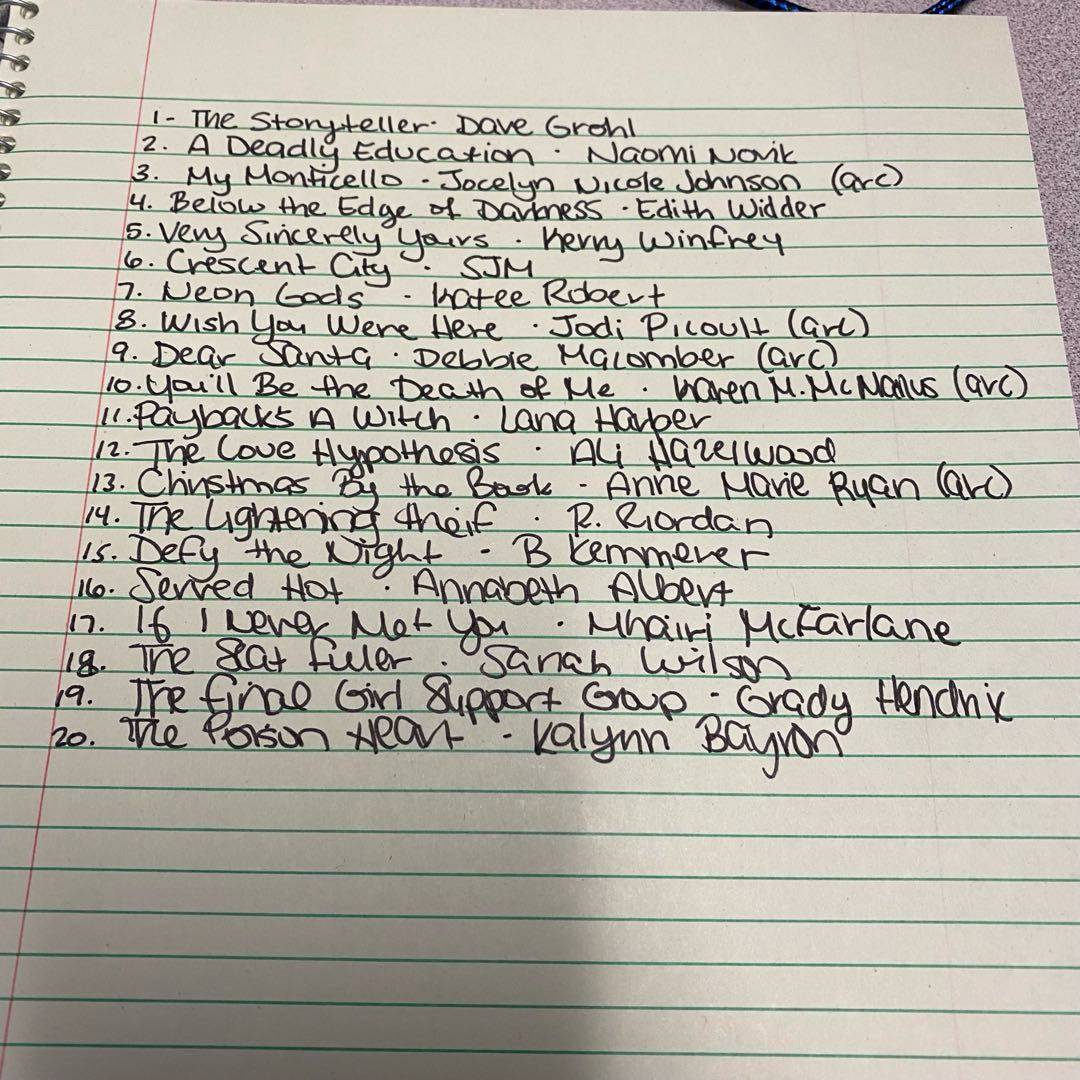 1- The Storyteller. Dave Grohl
2. A Deadly Education · Naomi Novik
3. My Monticello - Jocelyn Nicole Johnson (arc)
4. Below the Edge of Darkness · Edith Widder
5. Very Sincerely Yours · Kerry Winfrey
6. Crescent City · SJM
7. Neon Gods - Katee Robert
8. Wish You Were Here · Jodi Picoult (arc)
9. Dear Santa · Debbie Macomber (arc)
10. You'll Be the Death of Me · Karen M. McManus (arc)
11. Paybacks A Witch · Lana Harper
12. The Love Hypothesis · Ali Hazelwood
13. Christmas By the Book - Anne Marie Ryan (arc)
14. The Lightering theif · R. Riordan
15. Defy the Night - B Kemmerer
16. Served Hot · Annabeth Albert
17. If I Never Met You · Mhairi McFarlane
18. The Seat Filler · Sariah Wilson
19. The final Girl Support Group - Grady Hendrix
20. The Poison Heart - Kalynn Bayron